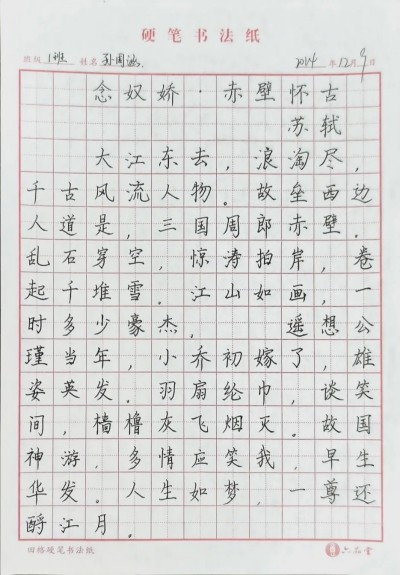 硬笔书法纸
班级 1班 姓名 孙国涵 2024年12月9日
念奴娇·赤壁怀古
苏轼
大江东去，浪淘尽，
千古风流人物。故垒西边
人道是，三国周郎赤壁．
乱石穿空，惊涛拍岸，卷
起千堆雪．江山如画，一
时多少豪杰．遥想公
瑾当年，小乔初嫁了，雄
姿英发．羽扇纶巾，谈笑
间，樯橹灰飞烟灭。故国
神游，多情应笑我，早生
华发。人生如梦，一尊还
酹江月．
田格硬笔书法纸 六品堂